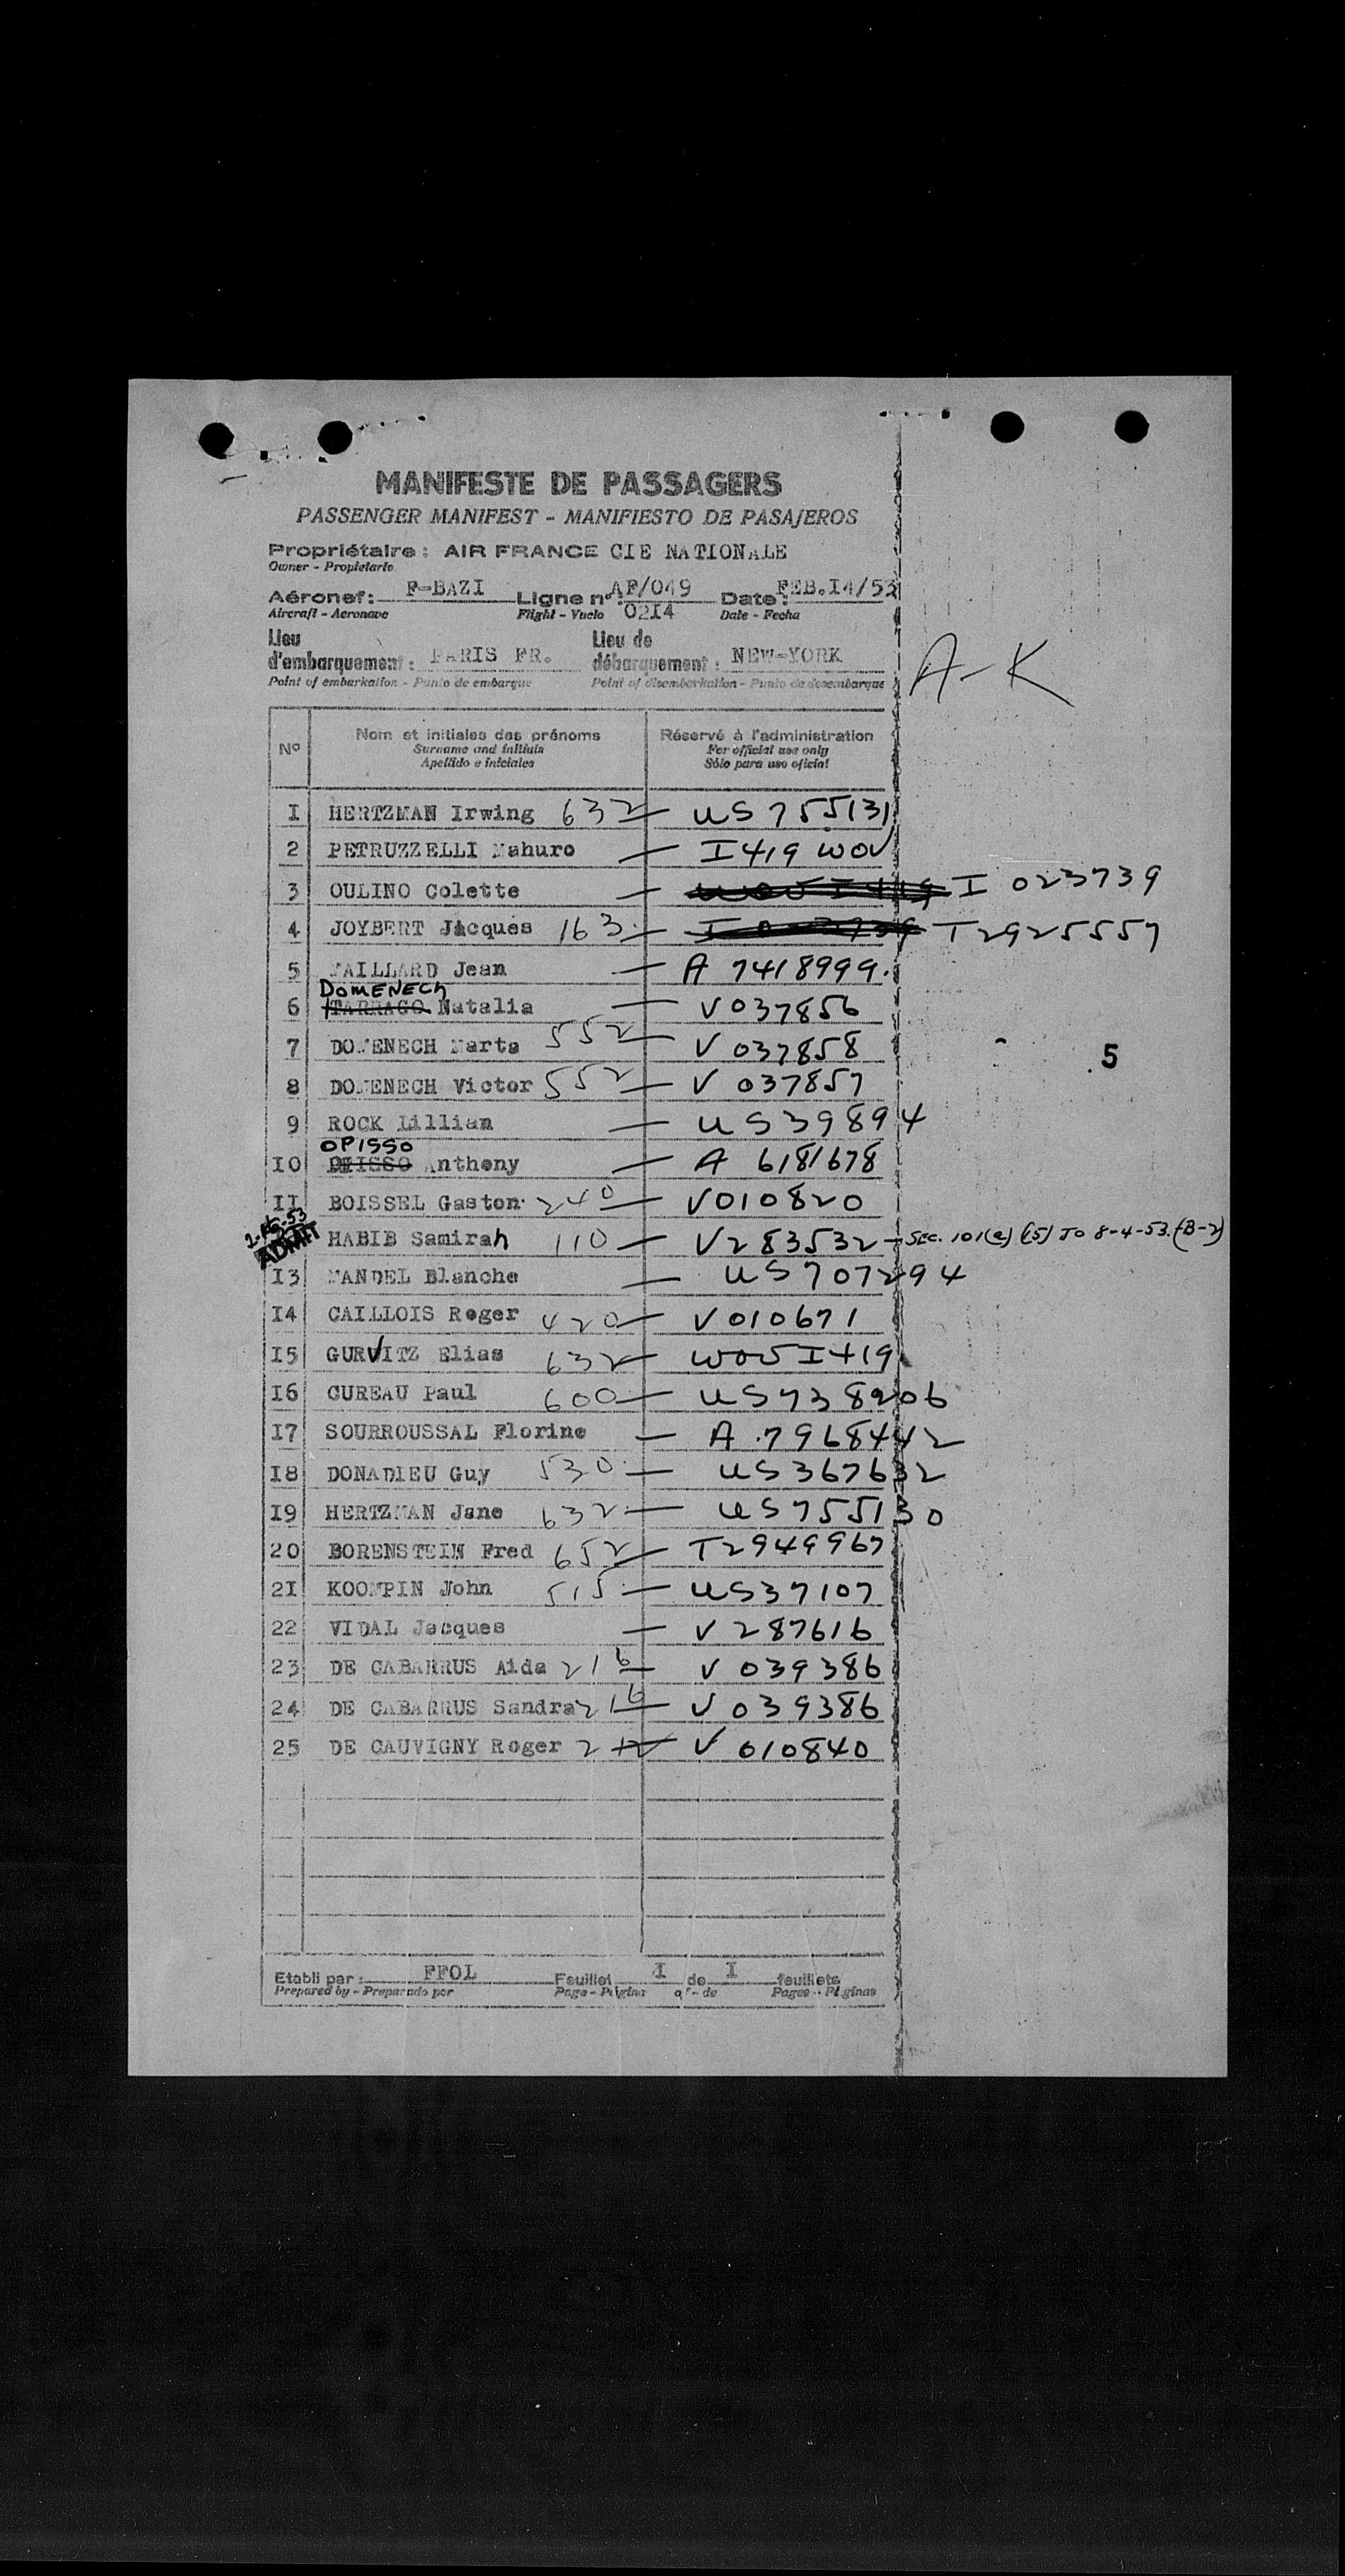 MANIFESTE DE PASSAGERS
PASSENGER MANIFEST - MANIFIESTO DE PASAJEROS
Propriétaire : AIR FRANCE CIE NATIONALE
Owner - Propietario
Aéronef : F-BAZI Ligne n° : AF/049 0214 Date : FEB.I4/53
Aircraft - Aeronave Flight - Vuelo Date - Fecha
Lieu d'embarquement : PARIS FR. Lieu de débarquement : NEW-YORK
Point of embarkation - Punto de embarque Point of disembarkation - Punto de desembarque
A-K
N° Nom et initiales des prénoms Réservé à l'administration
Surname and initials For official use only
Apellido e iniciales Sólo para uso oficial
I HERTZMAN Irwing 632 — US 755131
2 PETRUZZELLI Mahuro — I419 WOV
3 OULINO Colette — I 023739
4 JOYBERT Jacques 163 — T2925557
5 MAILLARD Jean — A 7418999.
DOMENECH
6 TARRAGO Natalia — V037856
7 DOMENECH Marta 552 — V 037858
5
8 DOMENECH Victor 552 — V 037857
9 ROCK Lillian — US39894
OPISSO
IO Anthony — A 6181678
II BOISSEL Gaston 240 — V010820
2-15-53
ADMIT
HABIB Samirah 110 — V283532 - SEC. 101(a)(15) TO 8-4-53.(B-2)
I3 MANDEL Blanche — US707294
I4 CAILLOIS Roger 420 — V010671
I5 GURVITZ Elias 632 — WOV I419
I6 CUREAU Paul 600 — US738906
I7 SOURROUSSAL Florine — A.7968442
I8 DONADIEU Guy 530 — US367632
I9 HERTZMAN Jane 632 — US755130
20 BORENSTEIN Fred 652 — T2949967
2I KOOMPIN John 515 — US37107
22 VIDAL Jacques — V 287616
23 DE CABARRUS Aida 216 — V 039386
24 DE CABARRUS Sandra 216 — V 039386
25 DE CAUVIGNY Roger V 010840
Etabli par : FFOL Feuillet I de I feuillets
Prepared by - Preparado por Page - Página of - de Pages - Páginas